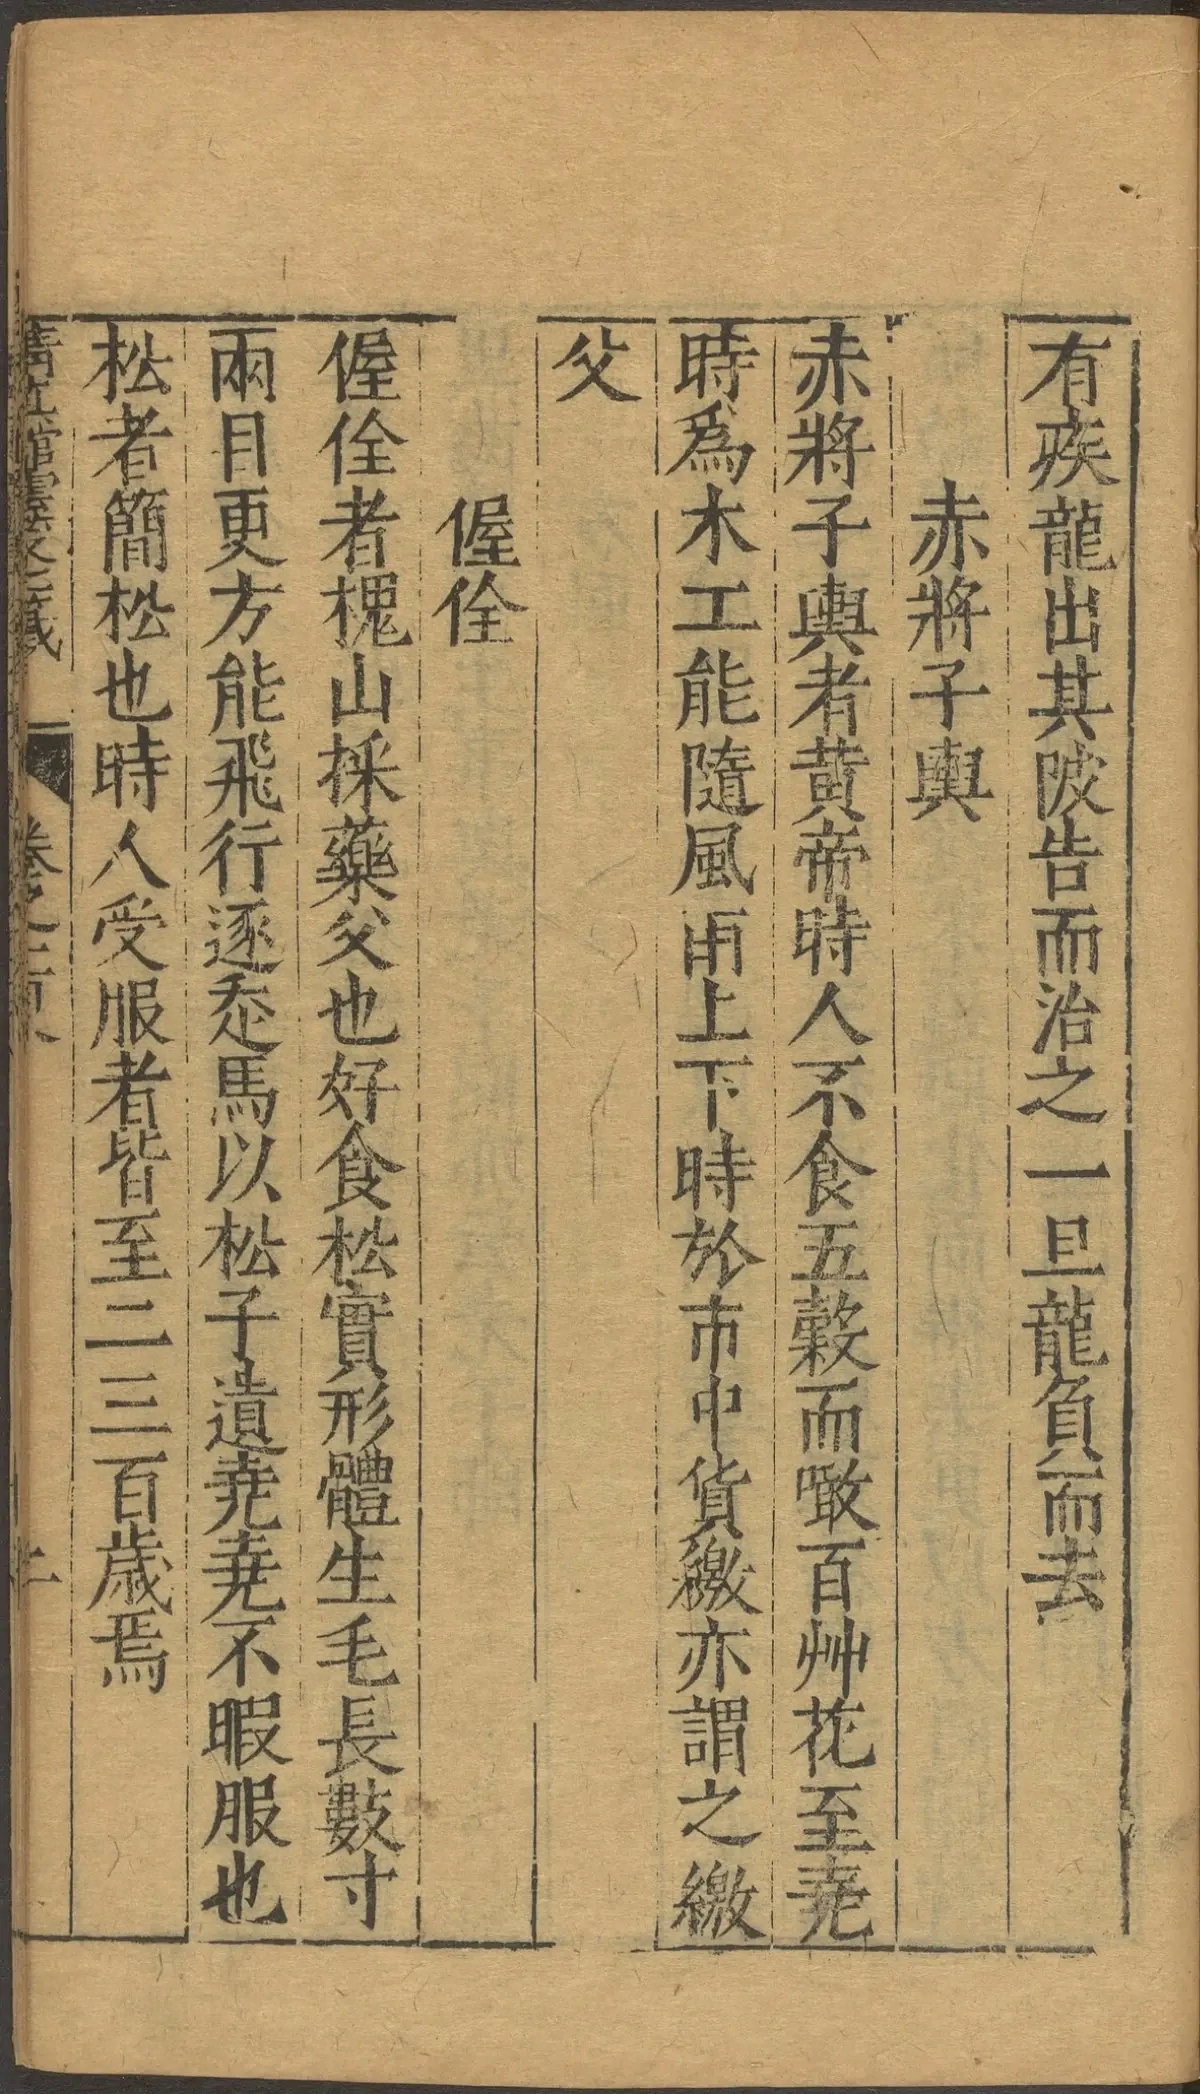 有疾龍出其陂告而治之一旦龍負而去
赤將子輿
赤將子輿者黃帝時人不食五穀而噉百艸花至堯
時爲木工能隨風雨上下時於市中貨繳亦謂之繳
父
偓佺
偓佺者槐山採藥父也好食松實形體生毛長數寸
兩目更方能飛行逐走馬以松子遺堯堯不暇服也
松者簡松也時人受服者皆至二三百歲焉